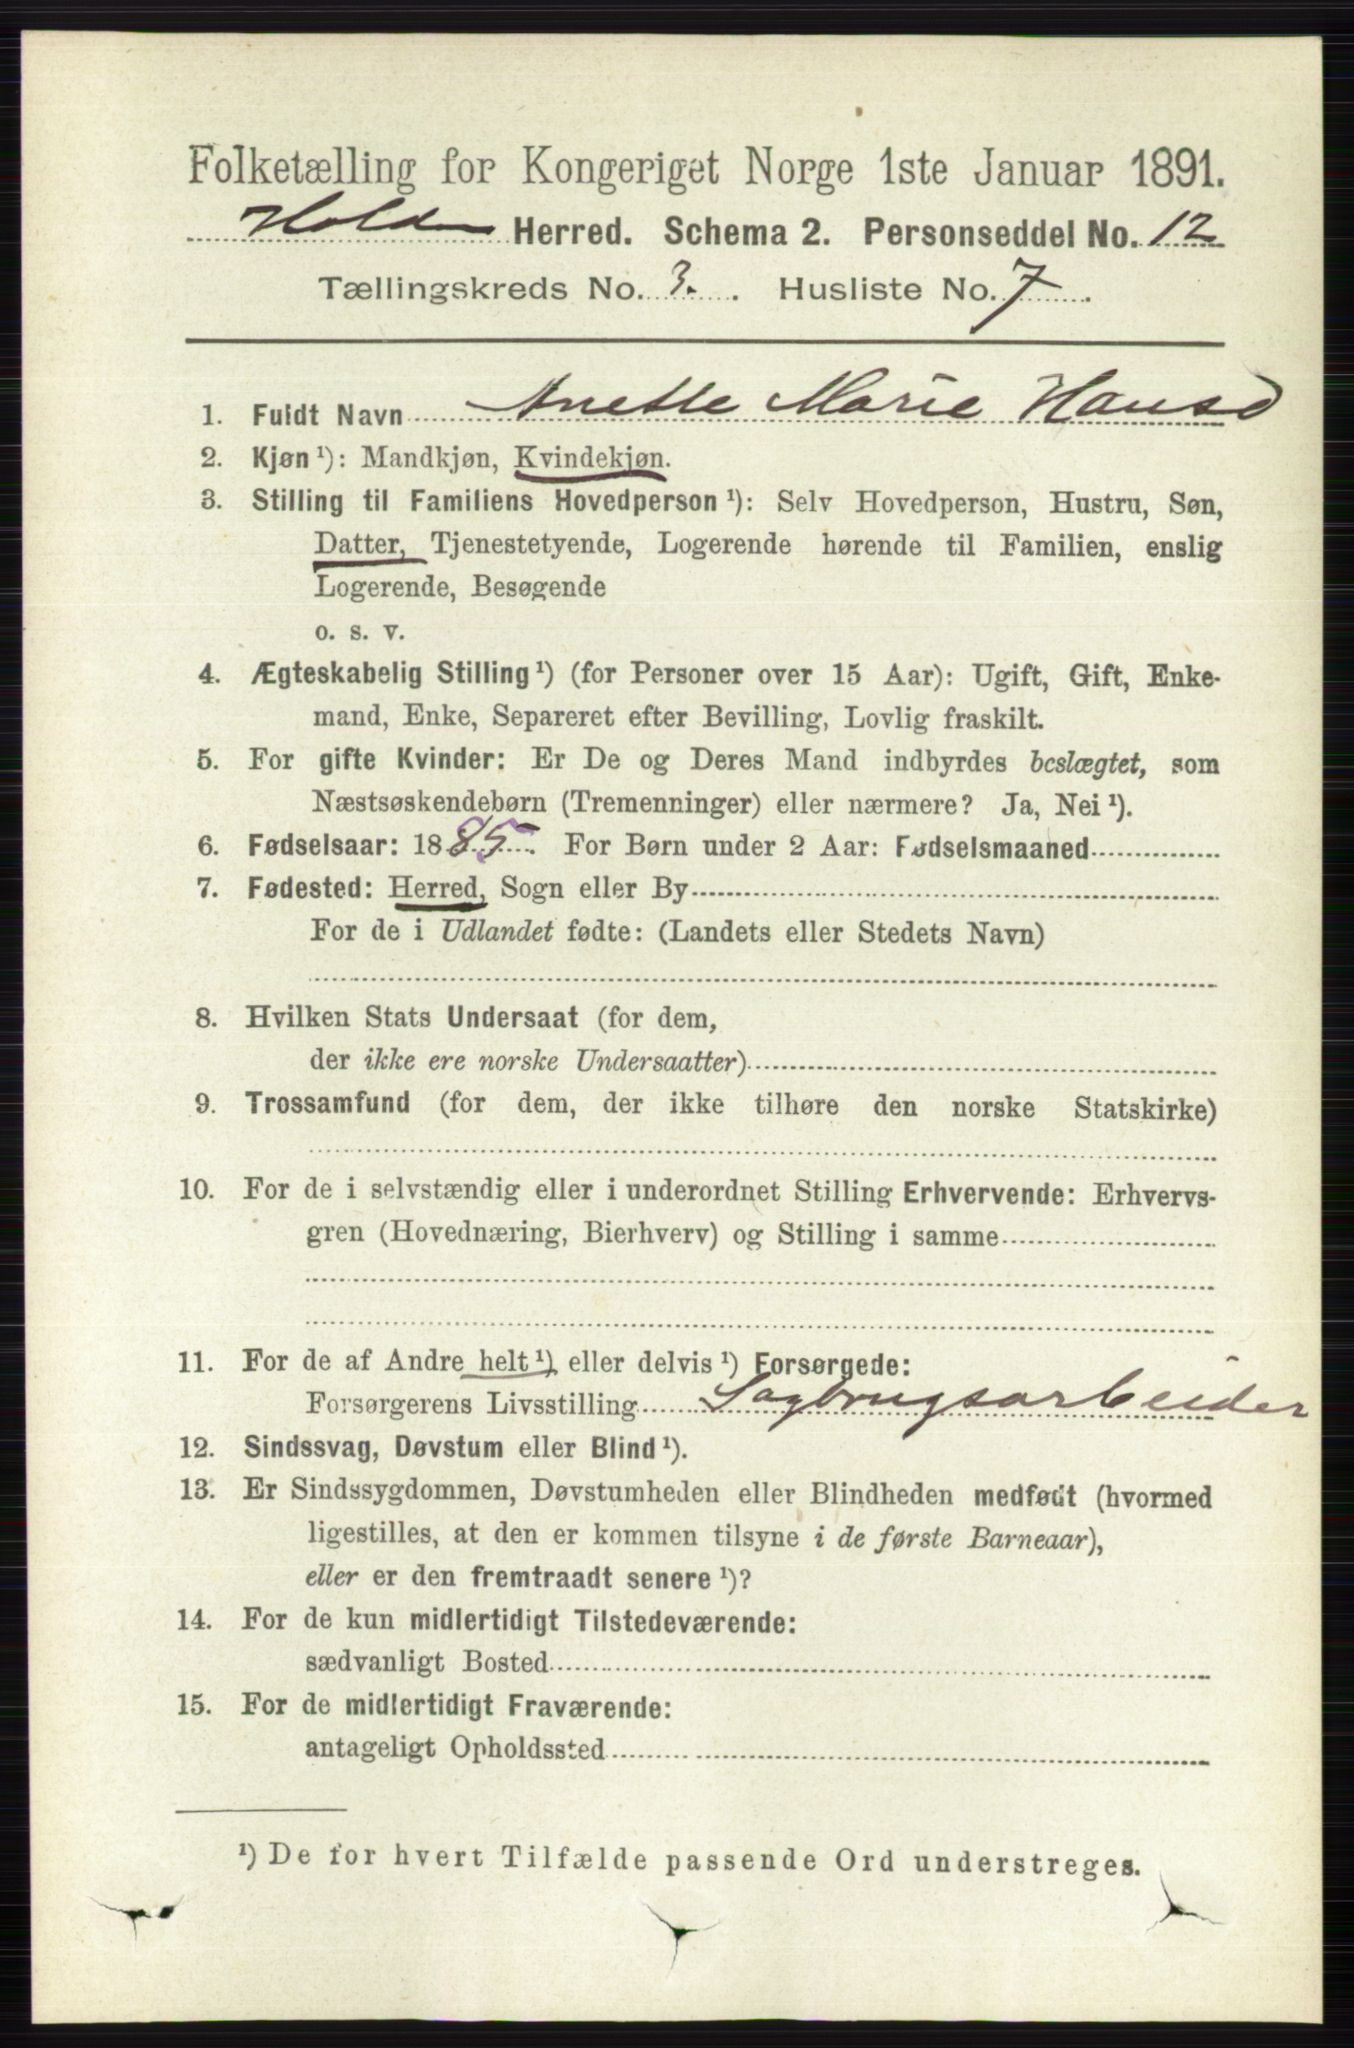 Folketælling for Kongeriget Norge 1ste Januar 1891.
Holden Herred. Schema 2. Personseddel No. 12
Tællingskreds No. 3. Husliste No. 7
1. Fuldt Navn Anette Marie Hansd
2. Kjøn ¹): Mandkjøn, Kvindekjøn.
3. Stilling til Familiens Hovedperson ¹): Selv Hovedperson, Hustru, Søn,
Datter, Tjenestetyende, Logerende hørende til Familien, enslig
Logerende, Besøgende
o. s. v.
4. Ægteskabelig Stilling ¹) (for Personer over 15 Aar): Ugift, Gift, Enke-
mand, Enke, Separeret efter Bevilling, Lovlig fraskilt.
5. For gifte Kvinder: Er De og Deres Mand indbyrdes beslægtet, som
Næstsøskendebørn (Tremenninger) eller nærmere? Ja, Nei ¹).
6. Fødselsaar: 1885. For Børn under 2 Aar: Fødselsmaaned
7. Fødested: Herred, Sogn eller By
For de i Udlandet fødte: (Landets eller Stedets Navn)
8. Hvilken Stats Undersaat (for dem,
der ikke ere norske Undersaatter)
9. Trossamfund (for dem, der ikke tilhøre den norske Statskirke)
10. For de i selvstændig eller i underordnet Stilling Erhvervende: Erhvervs-
gren (Hovednæring, Bierhverv) og Stilling i samme
11. For de af Andre helt ¹), eller delvis ¹) Forsørgede:
Forsørgerens Livsstilling Sagbrugsarbeider
12. Sindssvag, Døvstum eller Blind ¹).
13. Er Sindssygdommen, Døvstumheden eller Blindheden medfødt (hvormed
ligestilles, at den er kommen tilsyne i de første Barneaar),
eller er den fremtraadt senere ¹)?
14. For de kun midlertidigt Tilstedeværende:
sædvanligt Bosted
15. For de midlertidigt Fraværende:
antageligt Opholdssted
¹) De for hvert Tilfælde passende Ord understreges.